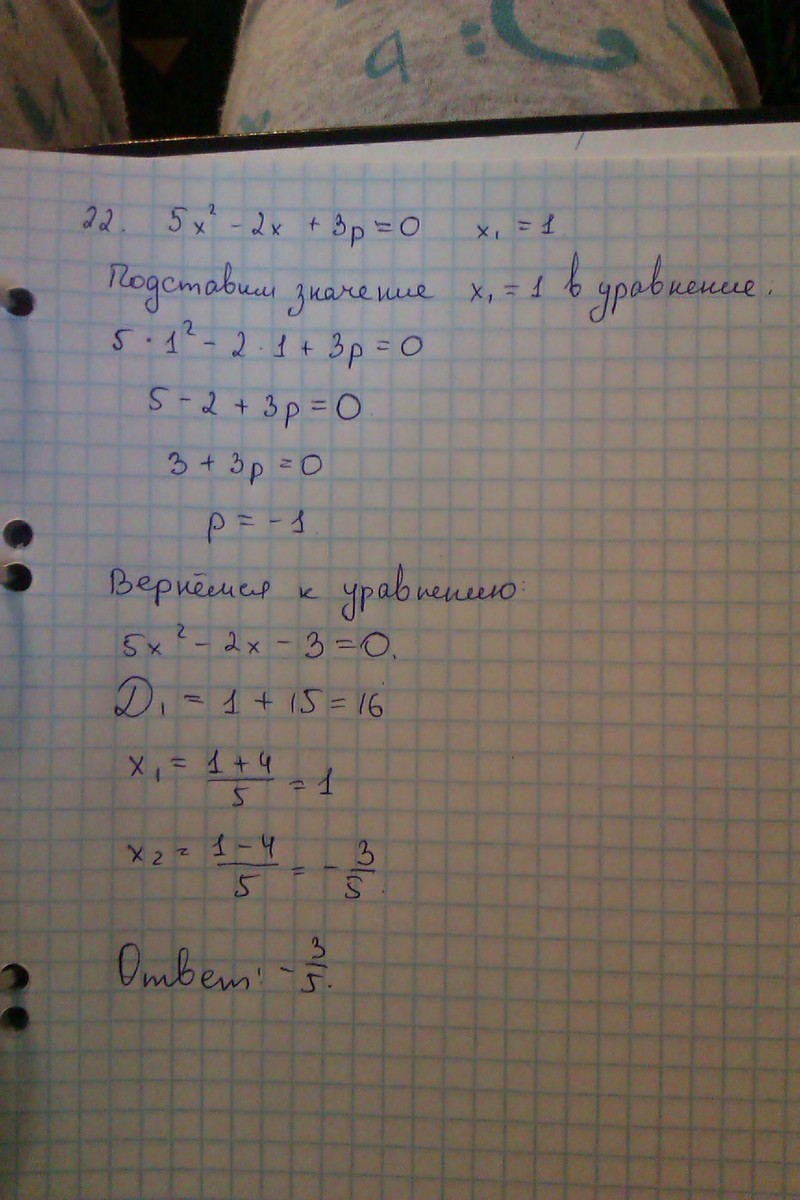 22. 5x² - 2x + 3p = 0 x₁ = 1
Подставим значение x₁ = 1 в уравнение:
5 · 1² - 2 · 1 + 3p = 0
5 - 2 + 3p = 0
3 + 3p = 0
p = -1
Вернёмся к уравнению:
5x² - 2x - 3 = 0.
D₁ = 1 + 15 = 16
x₁ = (1 + 4)/5 = 1
x₂ = (1 - 4)/5 = -3/5.
Ответ: -3/5.